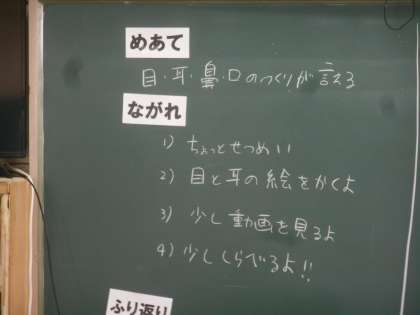 めあて
目・耳・鼻・口のつくりが言える
ながれ
1) ちょっとせつめい
2) 目と耳の絵をかくよ
3) 少し動画を見るよ
4) 少ししらべるよ!!
ふり返り